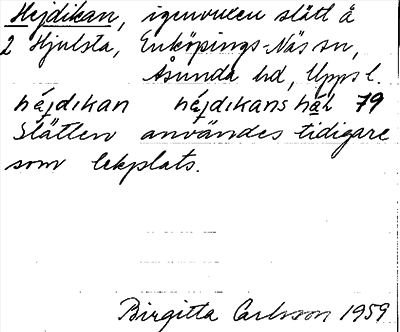 Hejdikan, igenvuxen slätt å
2 Hjulsta, Enköpings-Näs sn,
Åsunda hd, Upps l.
héjdıkan héjdıkans hȧl 79
Slätten användes tidigare
som lekplats.
Birgitta Carlsson 1959